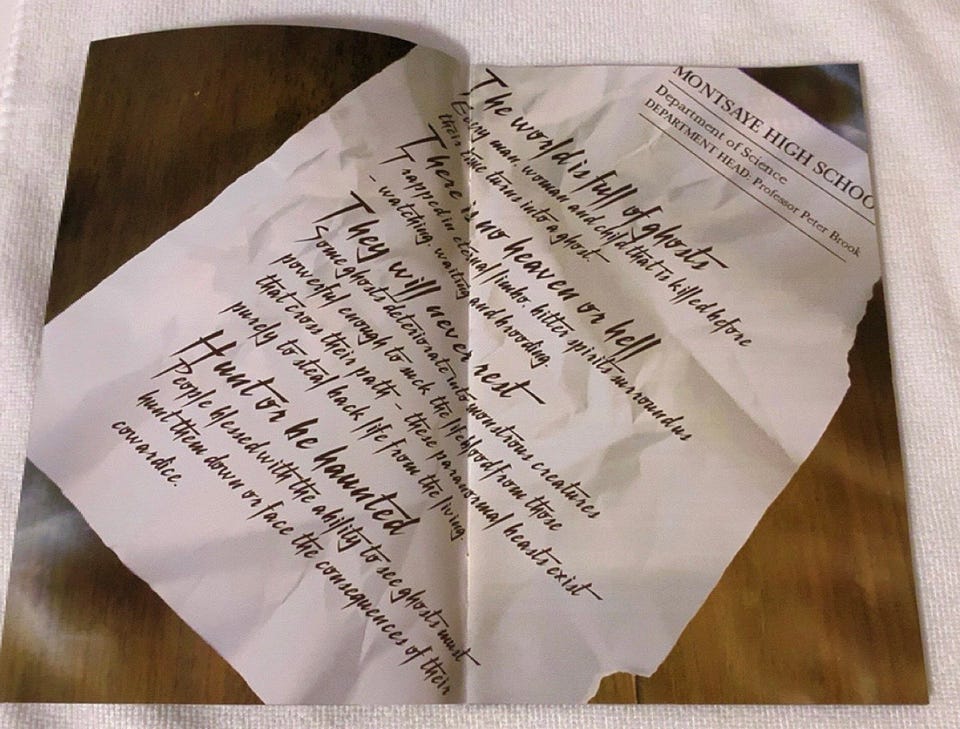 MONTSAYE HIGH SCHOO
Department of Science
DEPARTMENT HEAD: Professor Peter Brook
The world is full of ghosts
Every man, woman and child that is killed before
their time turns into a ghost
There is no heaven or hell
Trapped in eternal limbo, bitter spirits surround us
- watching, waiting and brooding.
They will never rest
Some ghosts deteriorate into monstrous creatures
powerful enough to suck the lifeblood from those
that cross their path - these paranormal beasts exist
purely to steal back life from the living
Hunt or be haunted
People blessed with the ability to see ghosts must
hunt them down or face the consequences of their
cowardice.